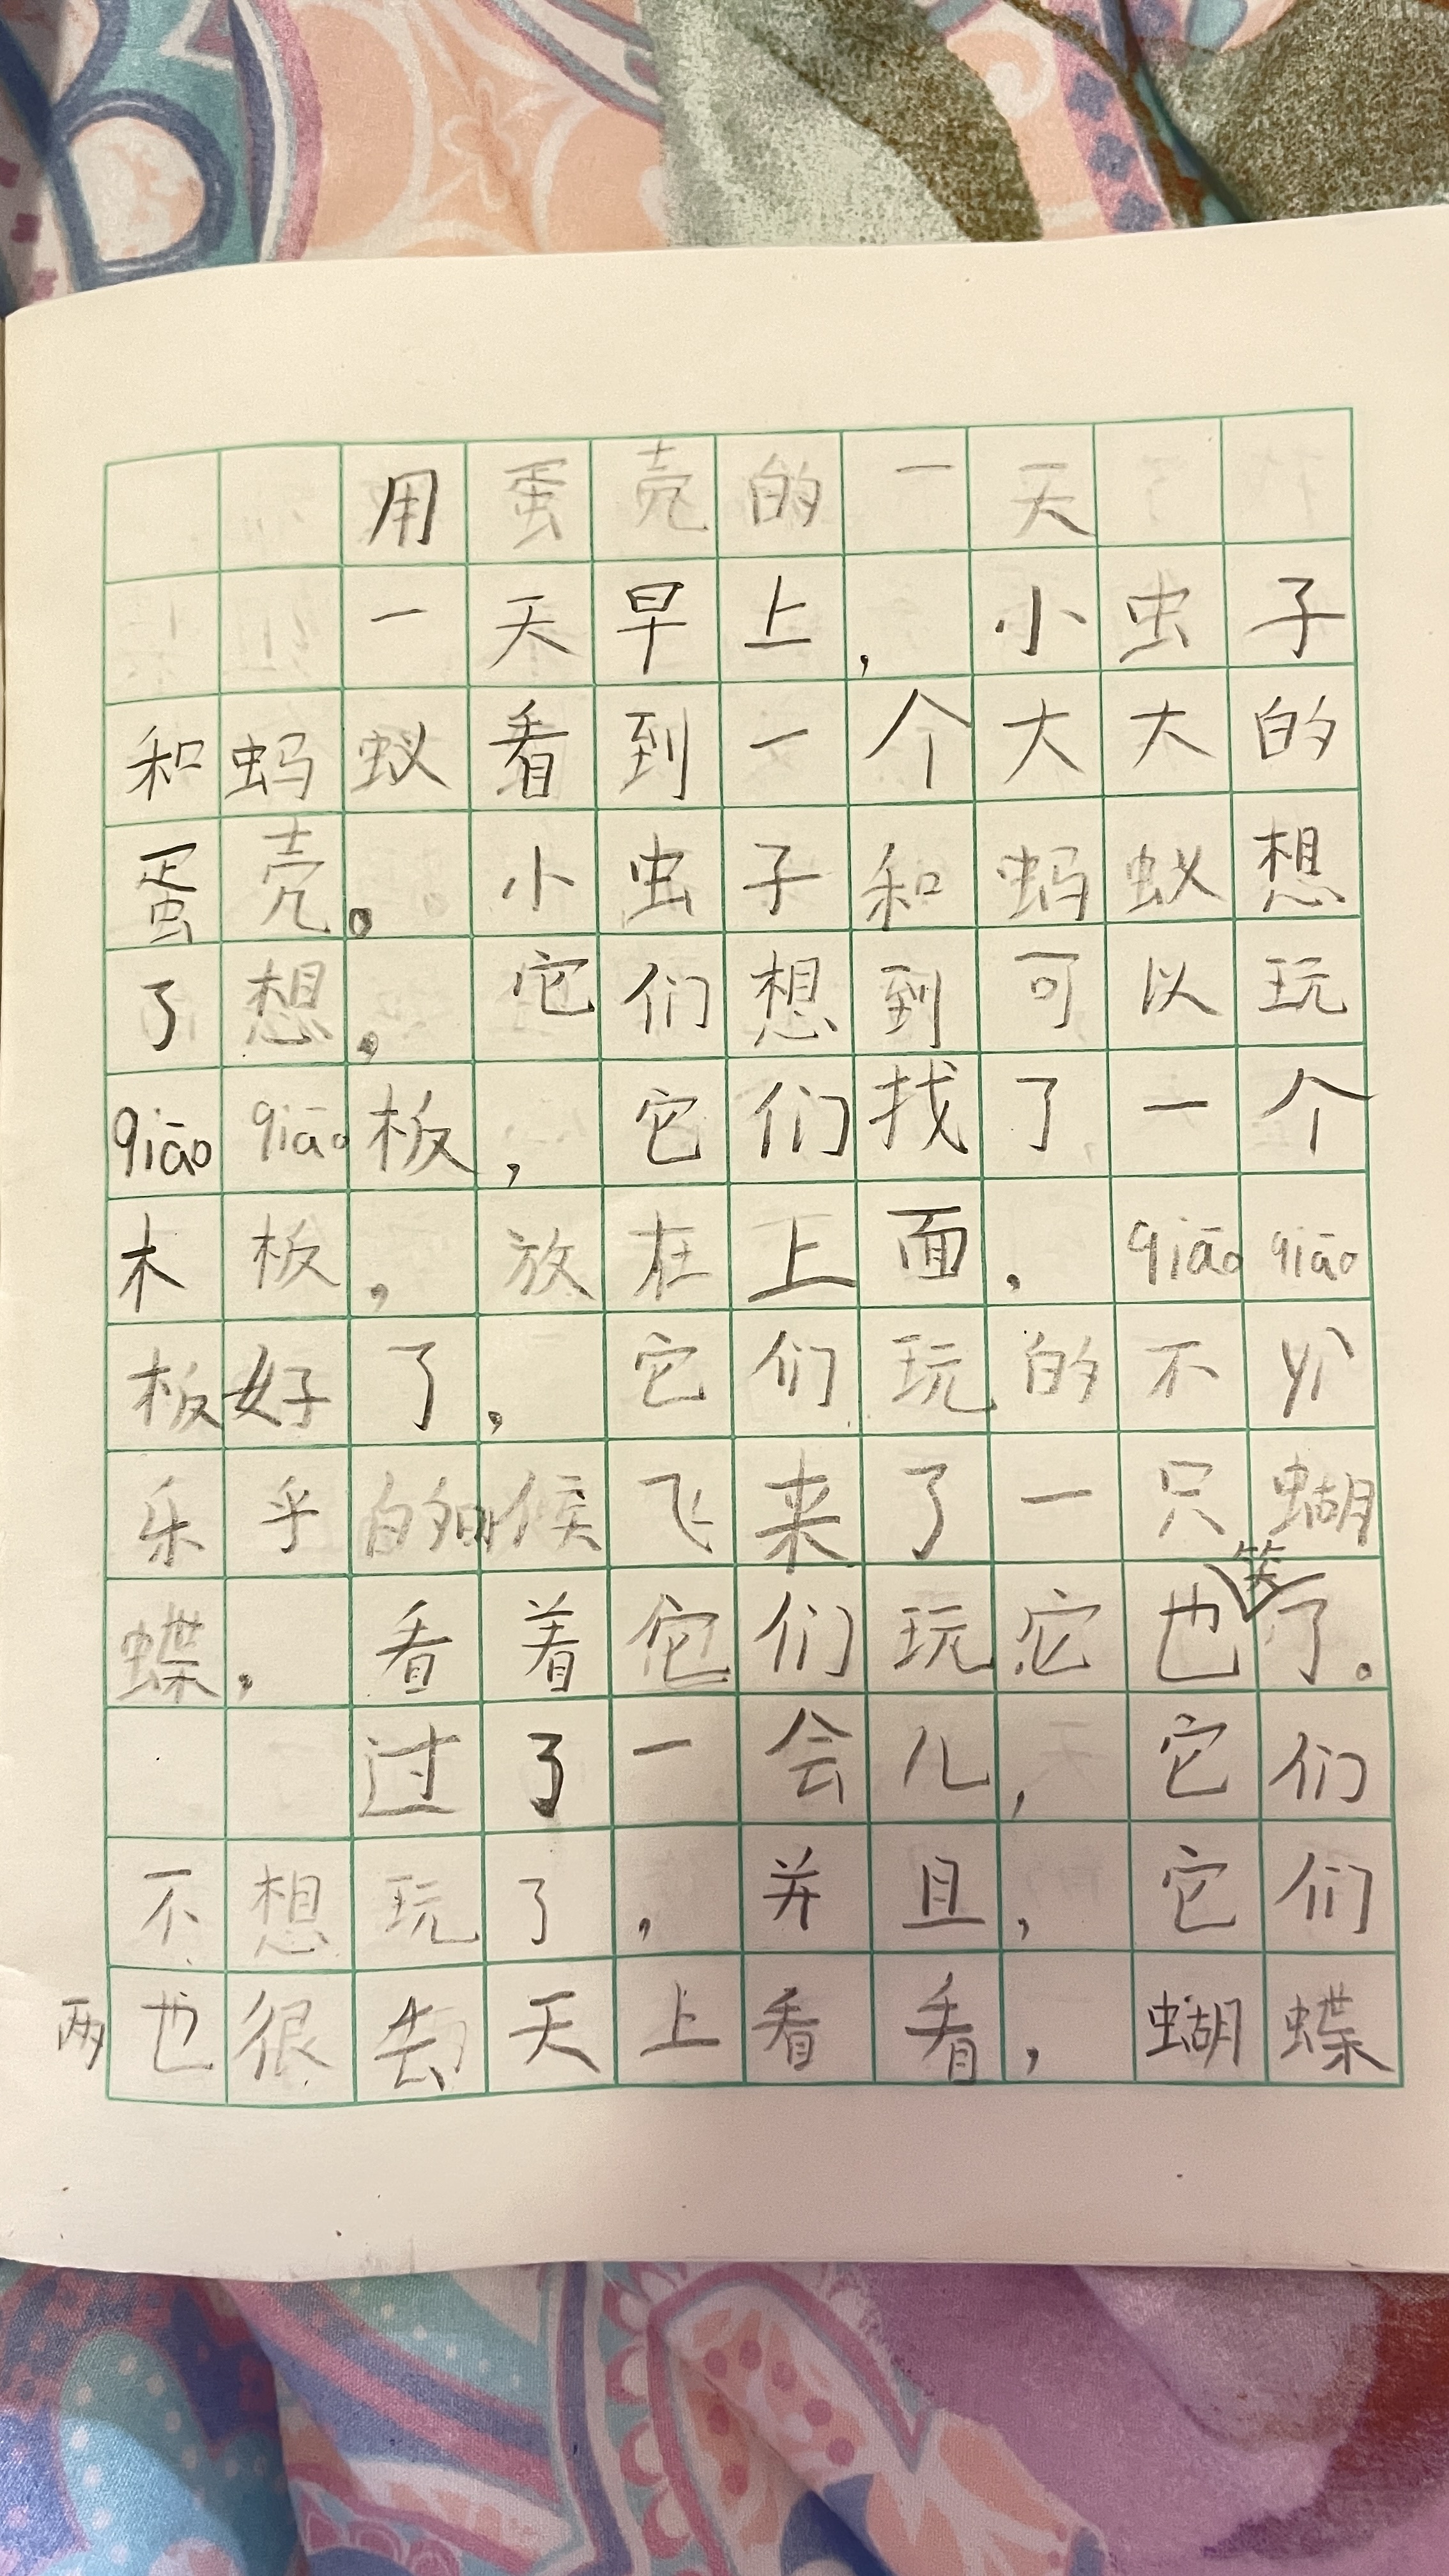 用蛋壳的一天
一天早上，小虫子
和蚂蚁看到一个大大的
蛋壳。小虫子和蚂蚁想
了想，它们想到可以玩
qiāo qiāo板，它们找了一个
木板，放在上面，qiāo qiāo
板好了，它们玩的不
乐乎的时候飞来了一只蝴
蝶，看着它们玩它也笑了。
过了一会儿，它们
不想玩了，并且，它们
两也很去天上看看，蝴蝶